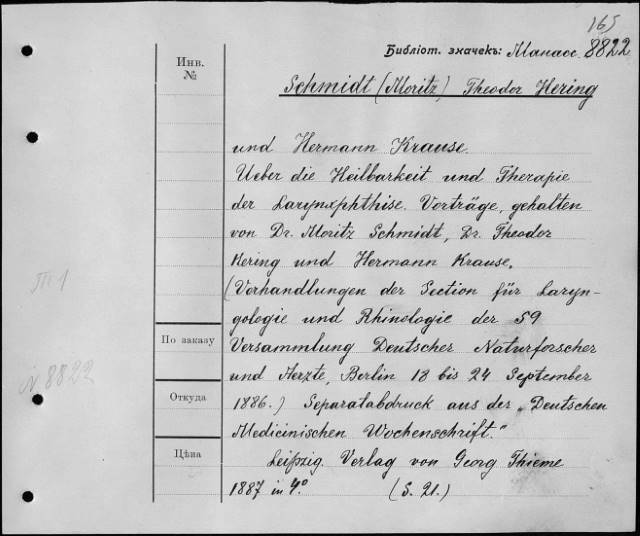 165
Библіот. значекъ: Манасс. 8822
Инв. №
Schmidt (Moritz) Theodor Hering
und Hermann Krause.
Ueber die Heilbarkeit und Therapie
der Larynxphthise. Vorträge, gehalten
von Dr. Moritz Schmidt, Dr. Theodor
Hering und Hermann Krause.
(Verhandlungen der Section für Laryn-
gologie und Rhinologie der 59
Versammlung Deutscher Naturforscher
und Aerzte, Berlin 18 bis 24 September
1886.) Separatabdruck aus der „Deutschen
Medicinischen Wochenschrift."
Leipzig. Verlag von Georg Thieme
1887 in 4° (S. 21.)
По заказу
Откуда
Цѣна
N 8822